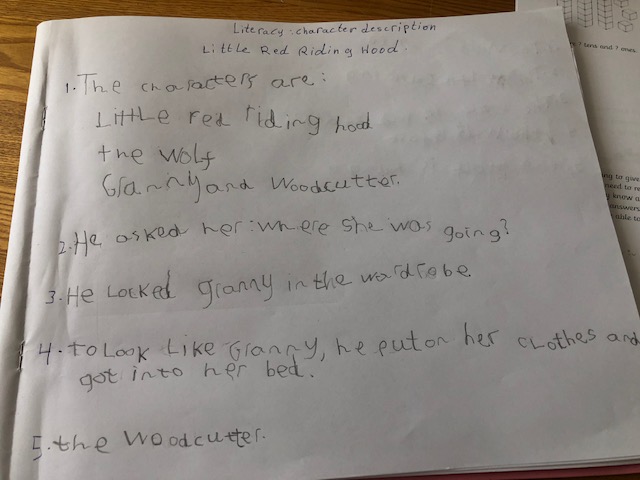 Literacy: character description
Little Red Riding Hood.
1. The characters are:
Little red riding hood
the wolf
Granny and Woodcutter.
2. He asked her: where she was going?
3. He Locked granny in the wardrobe
4. To Look Like Granny, he put on her clothes and
got into her bed.
5. the Woodcutter.
? tens and ? ones